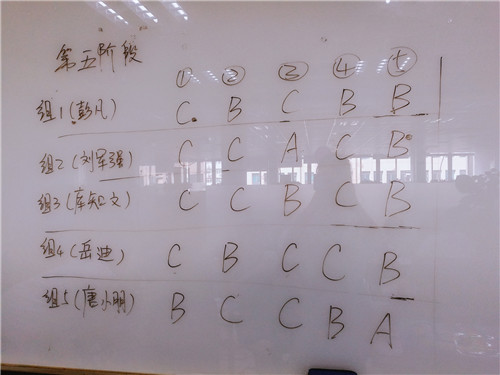 第五阶段
① ② ③ ④ ⑤
组1(彭凡) C B C B B
组2(刘军强) C C A C B
组3(库知文) C C B C B
组4(岳迪) C B C C B
组5(唐小明) B C C B A